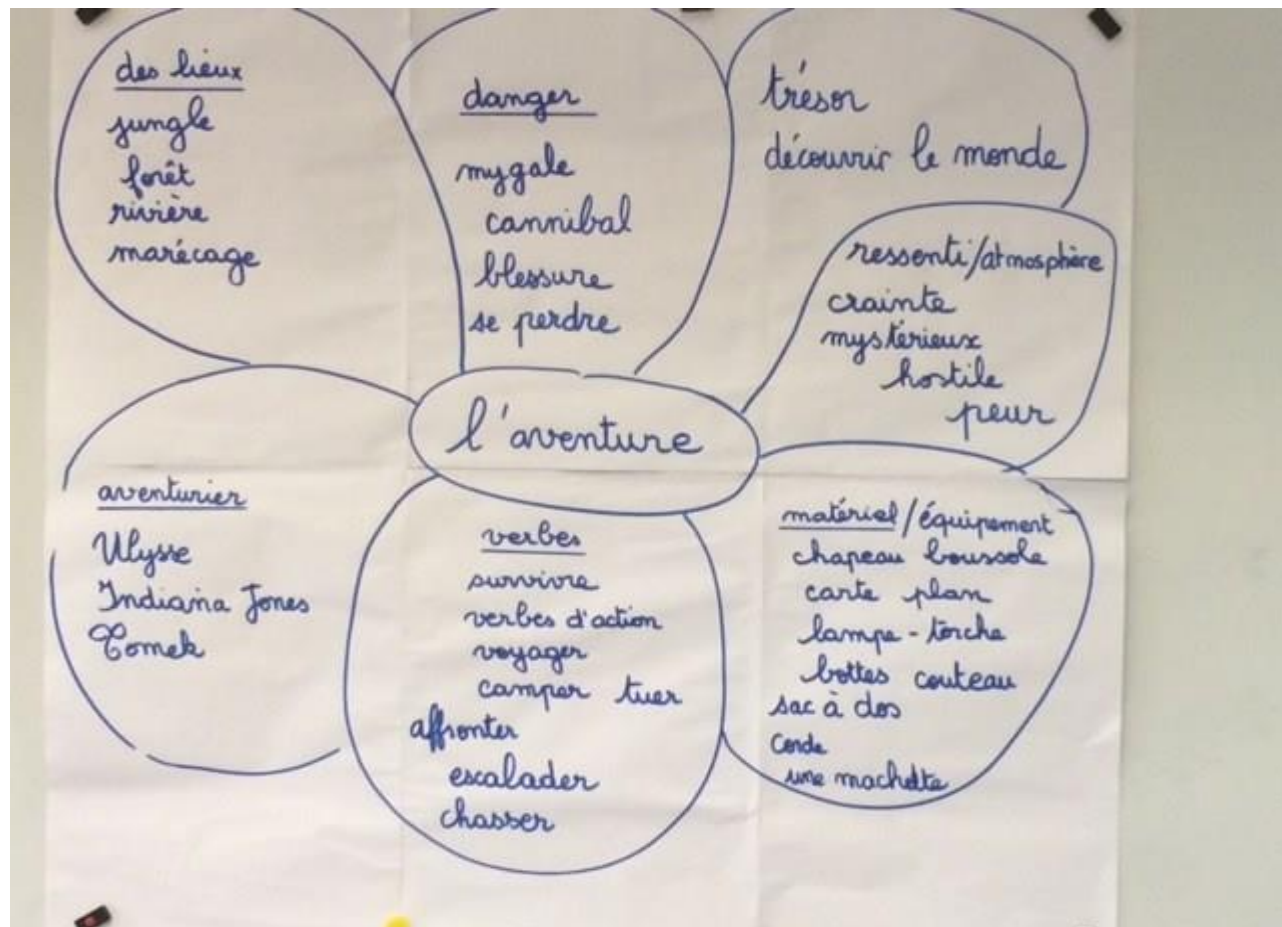 des lieux
jungle
forêt
rivière
marécage
danger
mygale
cannibal
blessure
se perdre
trésor
découvrir le monde
ressenti/atmosphère
crainte
mystérieux
hostile
peur
l'aventure
aventurier
Ulysse
Indiana Jones
Tomek
verbes
survivre
verbes d'action
voyager
camper tuer
affronter
escalader
chasser
matériel/équipement
chapeau boussole
carte plan
lampe-torche
bottes couteau
sac à dos
corde
une machette